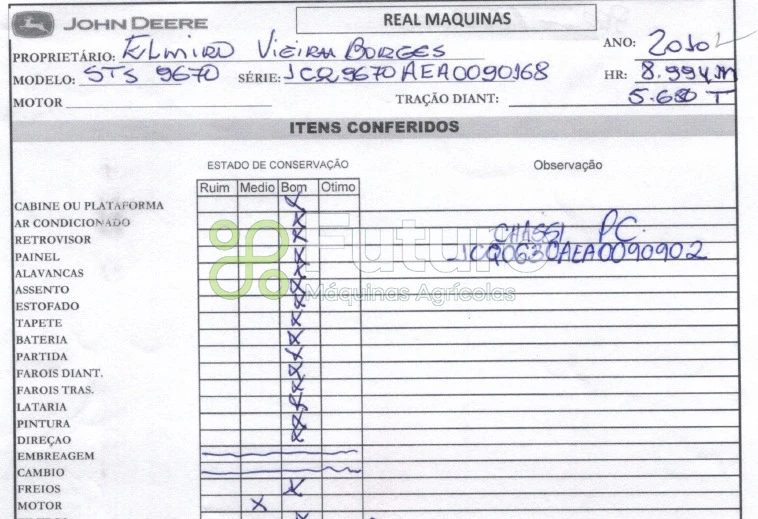 JOHN DEERE
REAL MAQUINAS
PROPRIETÁRIO: Elmiro Vieira Borges ANO: 2010
MODELO: STS 9670 SÉRIE: 1CQ9670AEA0090168 HR: 8.994 M
MOTOR TRAÇÃO DIANT: 5.680 T
ITENS CONFERIDOS
ESTADO DE CONSERVAÇÃO Observação
Ruim Medio Bom Otimo
CABINE OU PLATAFORMA X
AR CONDICIONADO X
RETROVISOR X CHASSI PC
PAINEL X 1CQ0630AEA0090902
ALAVANCAS X
ASSENTO X
ESTOFADO X
TAPETE X
BATERIA X
PARTIDA X
FAROIS DIANT. X
FAROIS TRAS. X
LATARIA X
PINTURA X
DIREÇAO X
EMBREAGEM
CAMBIO
FREIOS X
MOTOR X
Futuro
Máquinas Agrícolas